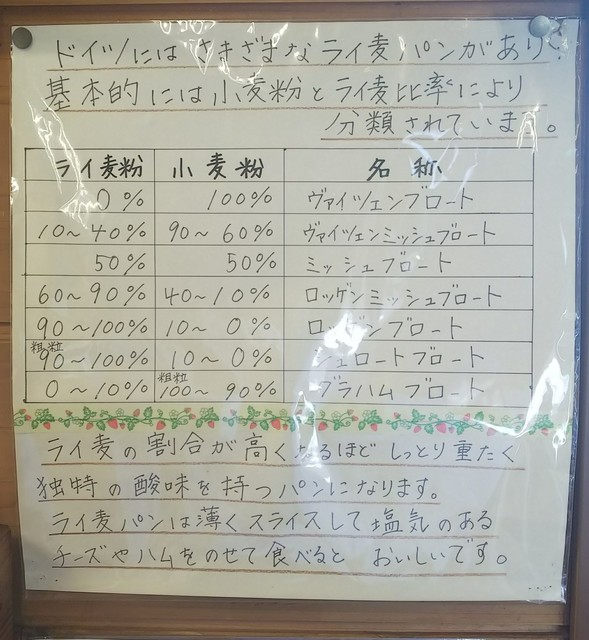 ドイツにはさまざまなライ麦パンがあり
基本的には小麦粉とライ麦比率により
分類されています。
ライ麦粉 小麦粉 名称
0% 100% ヴァイツェンブロート
10～40% 90～60% ヴァイツェンミッシュブロート
50% 50% ミッシュブロート
60～90% 40～10% ロッゲンミッシュブロート
90～100% 10～0% ロッゲンブロート
粗粒
90～100% 10～0% シュロートブロート
粗粒
0～10% 100～90% グラハムブロート
ライ麦の割合が高くなるほどしっとり重たく
独特の酸味を持つパンになります。
ライ麦パンは薄くスライスして塩気のある
チーズやハムをのせて食べると おいしいです。